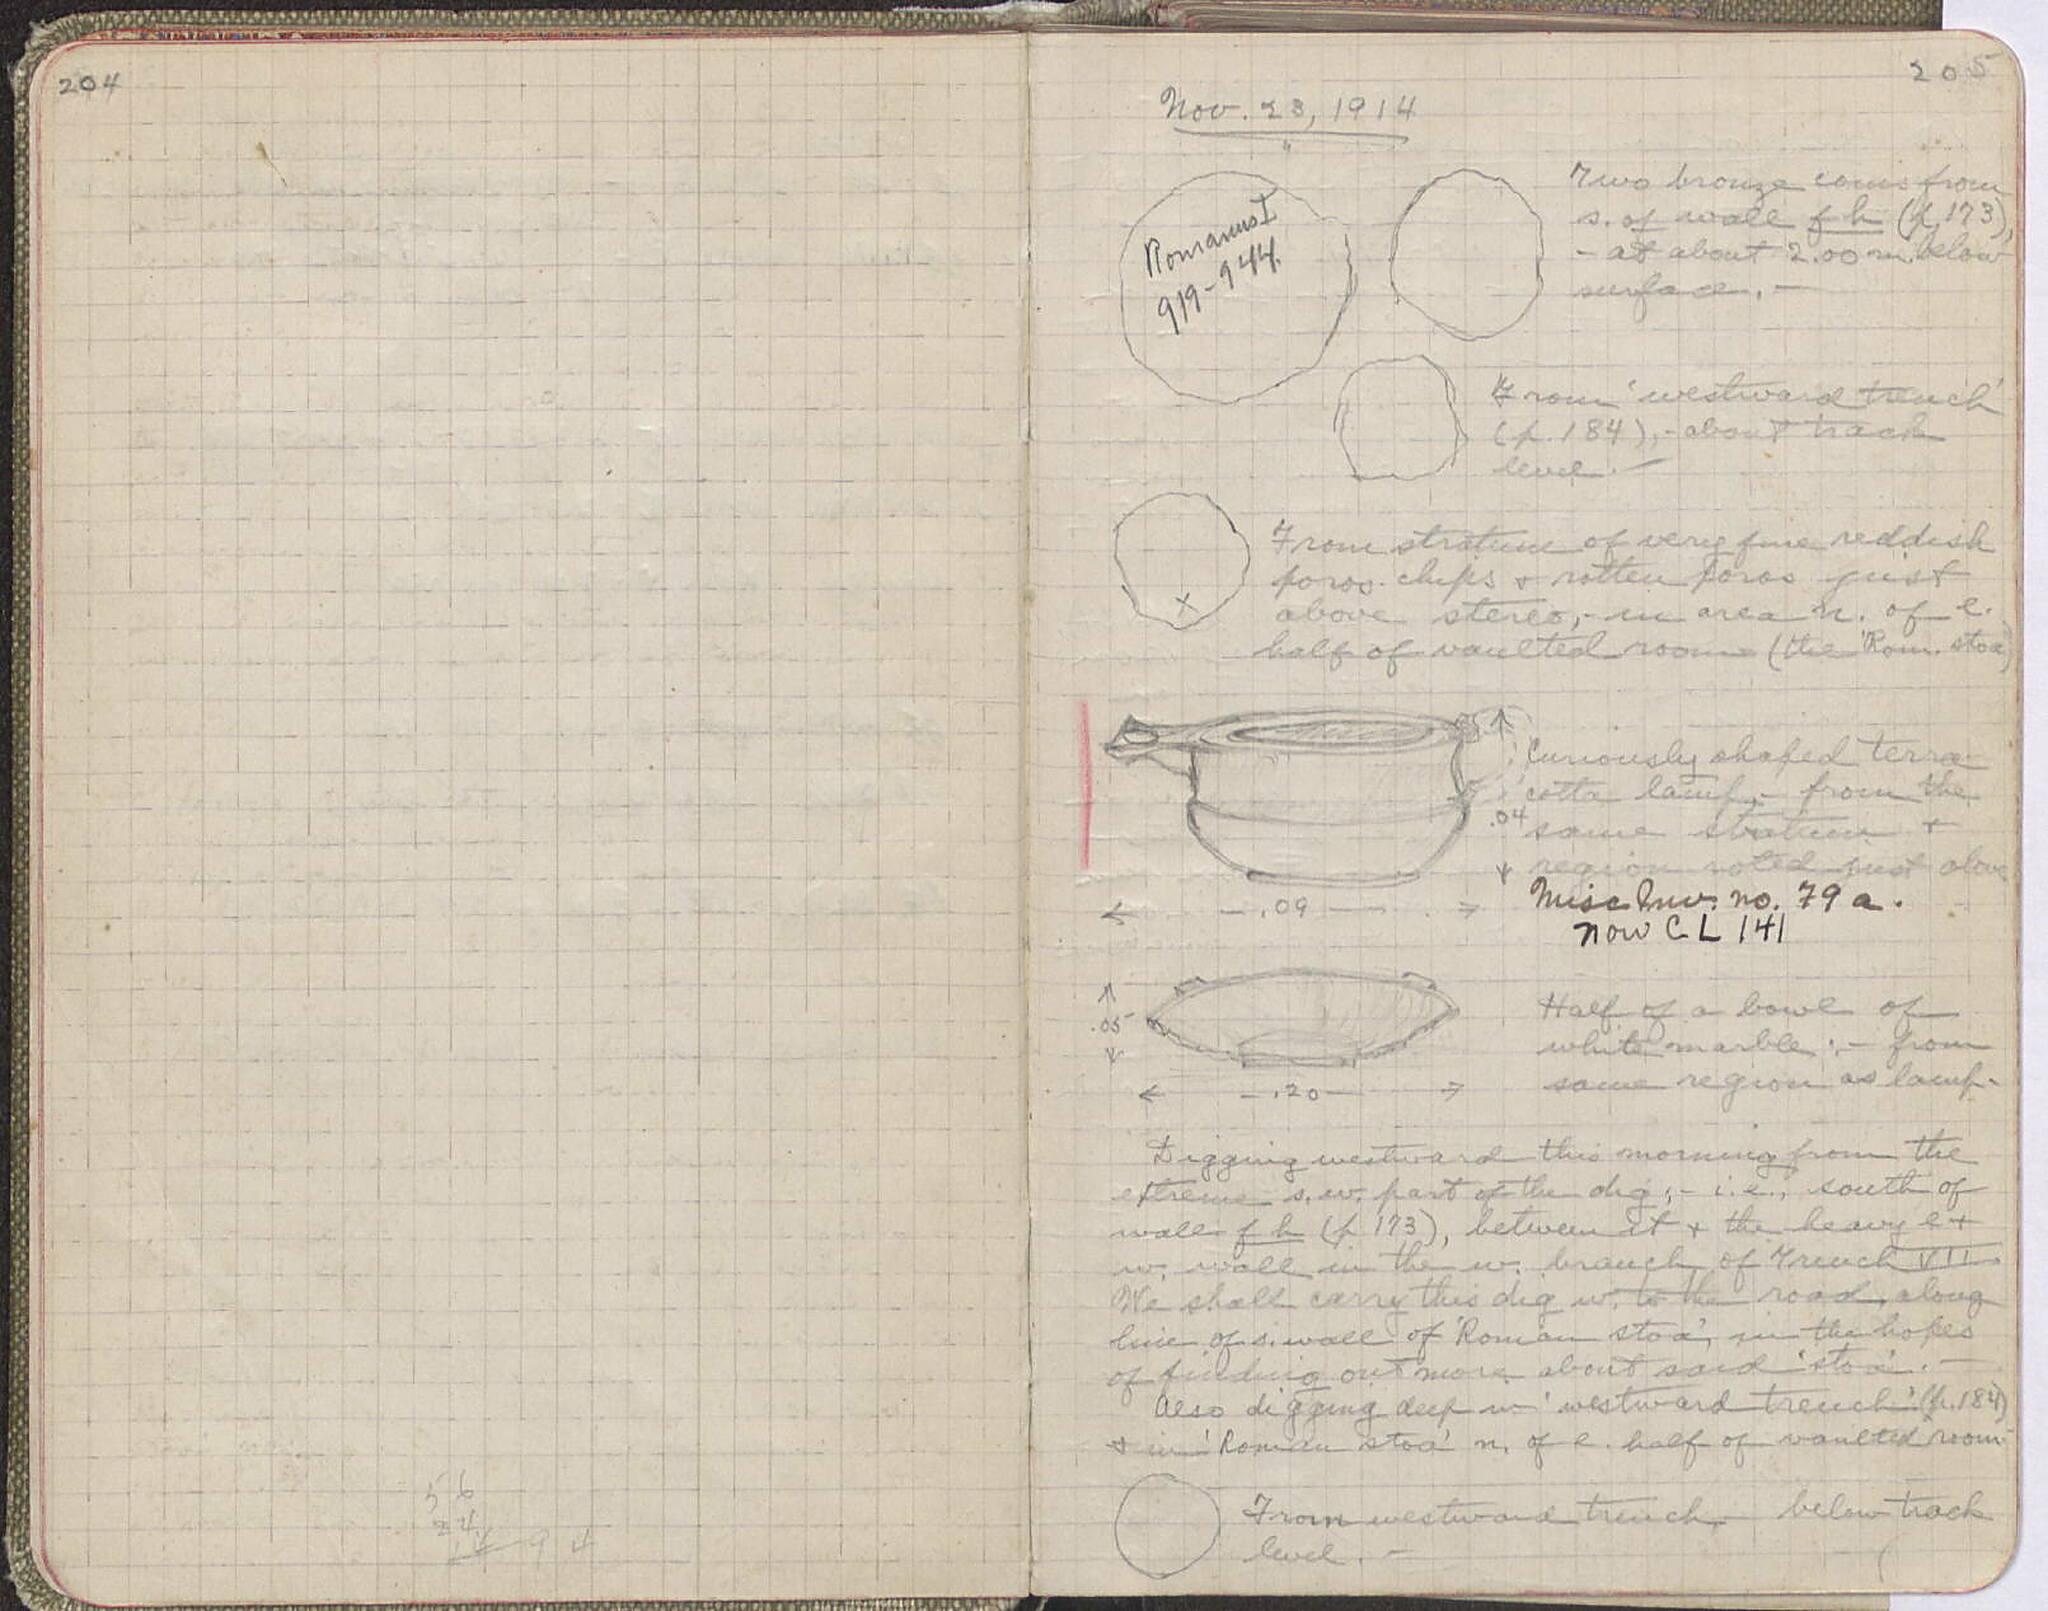 204
56
24
205
Nov. 23, 1914
Romanus I
919-944.
Two bronze coins from
s. of wall f h (p. 173),
- at about 2.00 m. below
surface. -
From 'westward trench'
(p. 184), - about track
level. -
From stratum of very fine reddish
poros chips & rotten poros just
above stereo, - in area n. of e.
half of vaulted room (the 'Rom. stoa')
X
Curiously shaped terra
cotta lamp, - from the
same stratum &
region noted just above
.04
.09
Misc Inv. no. 79 a.
now CL 141
Half of a bowl of
white marble, - from
same region as lamp.
.05
.20
Digging westward this morning from the
extreme s.w. part of the dig, - i.e., south of
wall f h (p 173), between it & the heavy e +
w. wall in the w. branch of Trench VII
We shall carry this dig w. to the road, along
line of s. wall of 'Roman stoa', in the hopes
of finding out more about said 'stoa'. -
Also digging deep in 'westward trench' (p. 184)
& in 'Roman stoa' n. of e. half of vaulted room
From westward trench, - below track
level. -